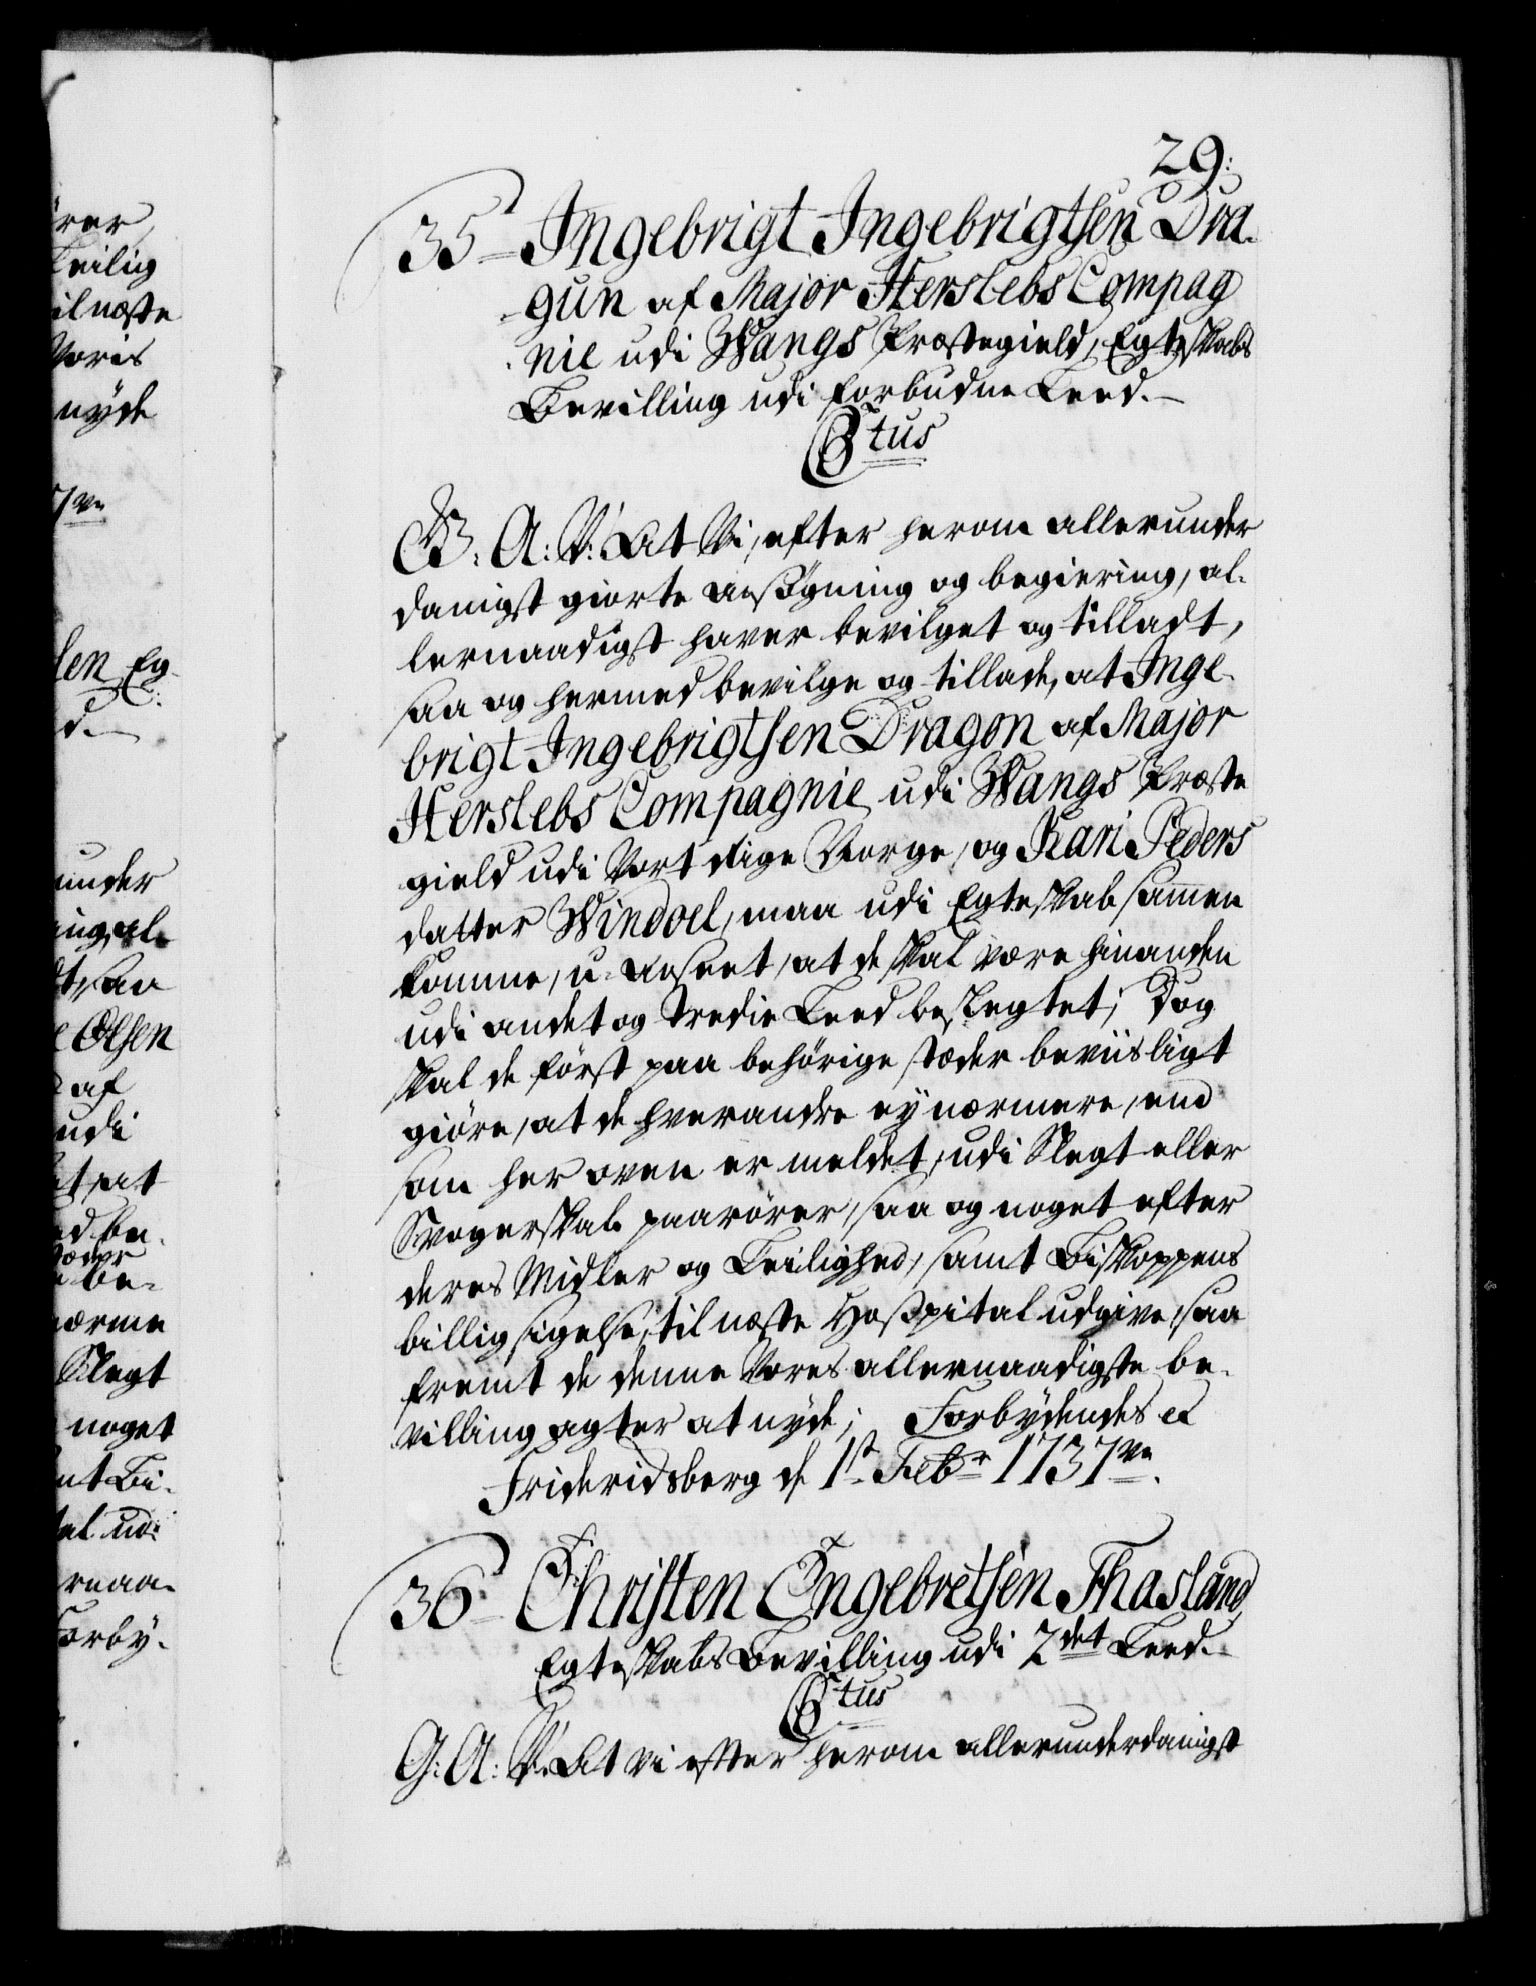 29.
35 Ingebrigt Ingebrigtsen Dra-
gun af Major Herslebs Compag
nie udi Wangs Præstegield, Egteskabs
Bevilling udi forbudne Leed.
Ctus
G. A: V: At Vi, efter herom allerunder
danigst giorte ansøgning og begiering, al-
lernaadigst haver bevilget og tilladt,
saa og hermed bevilge og tillade, at Inge-
brigt Ingebrigtsen Dragon af Major
Herslebs Compagnie udi Wangs Præste
gield udi Vort Rige Norge, og Kari Peders
datter Windoel, maa udi Egteskab sammen
komme, u-anseet, at de skal være hinanden
udi andet og tredie Leed beslegtet; Dog
skal de först paa behörige stæder beviisligt
giöre, at de hverandre ey nærmere, end
som her oven er meldet, udi Slegt eller
Svogerskab paarörer, saa og noget efter
deres Midler og Leilighed, samt Biskoppens
billig sigelse, til næste Hospital udgive, saa
fremt de denne Vores allernaadigste be-
villing agter at nyde; Forbydendes etc
Frideridsberg d. 1st Febr 1737ve.
36 Christen Engebretsen Thasland,
Egteskabs Bevilling udi 2det Leed.
Ctus
G: A: V. At vi efter herom allerunderdanigst